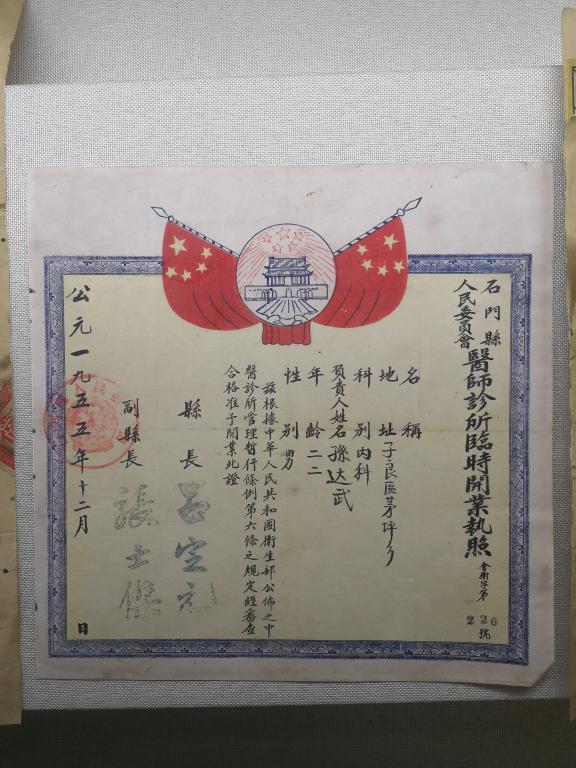 石門縣
人民委員會
醫師診所臨時開業執照
會衛字第
226號
名稱
地址子良區茅坪乡
科別内科
負責人姓名孫达武
年齡二二
性別男
茲根據中華人民共和國衛生部公佈之中
醫診所管理暫行條例第六條之規定經審查
合格准予開業此證
縣長
副縣長 張士傑
公元一九五五年十二月 日